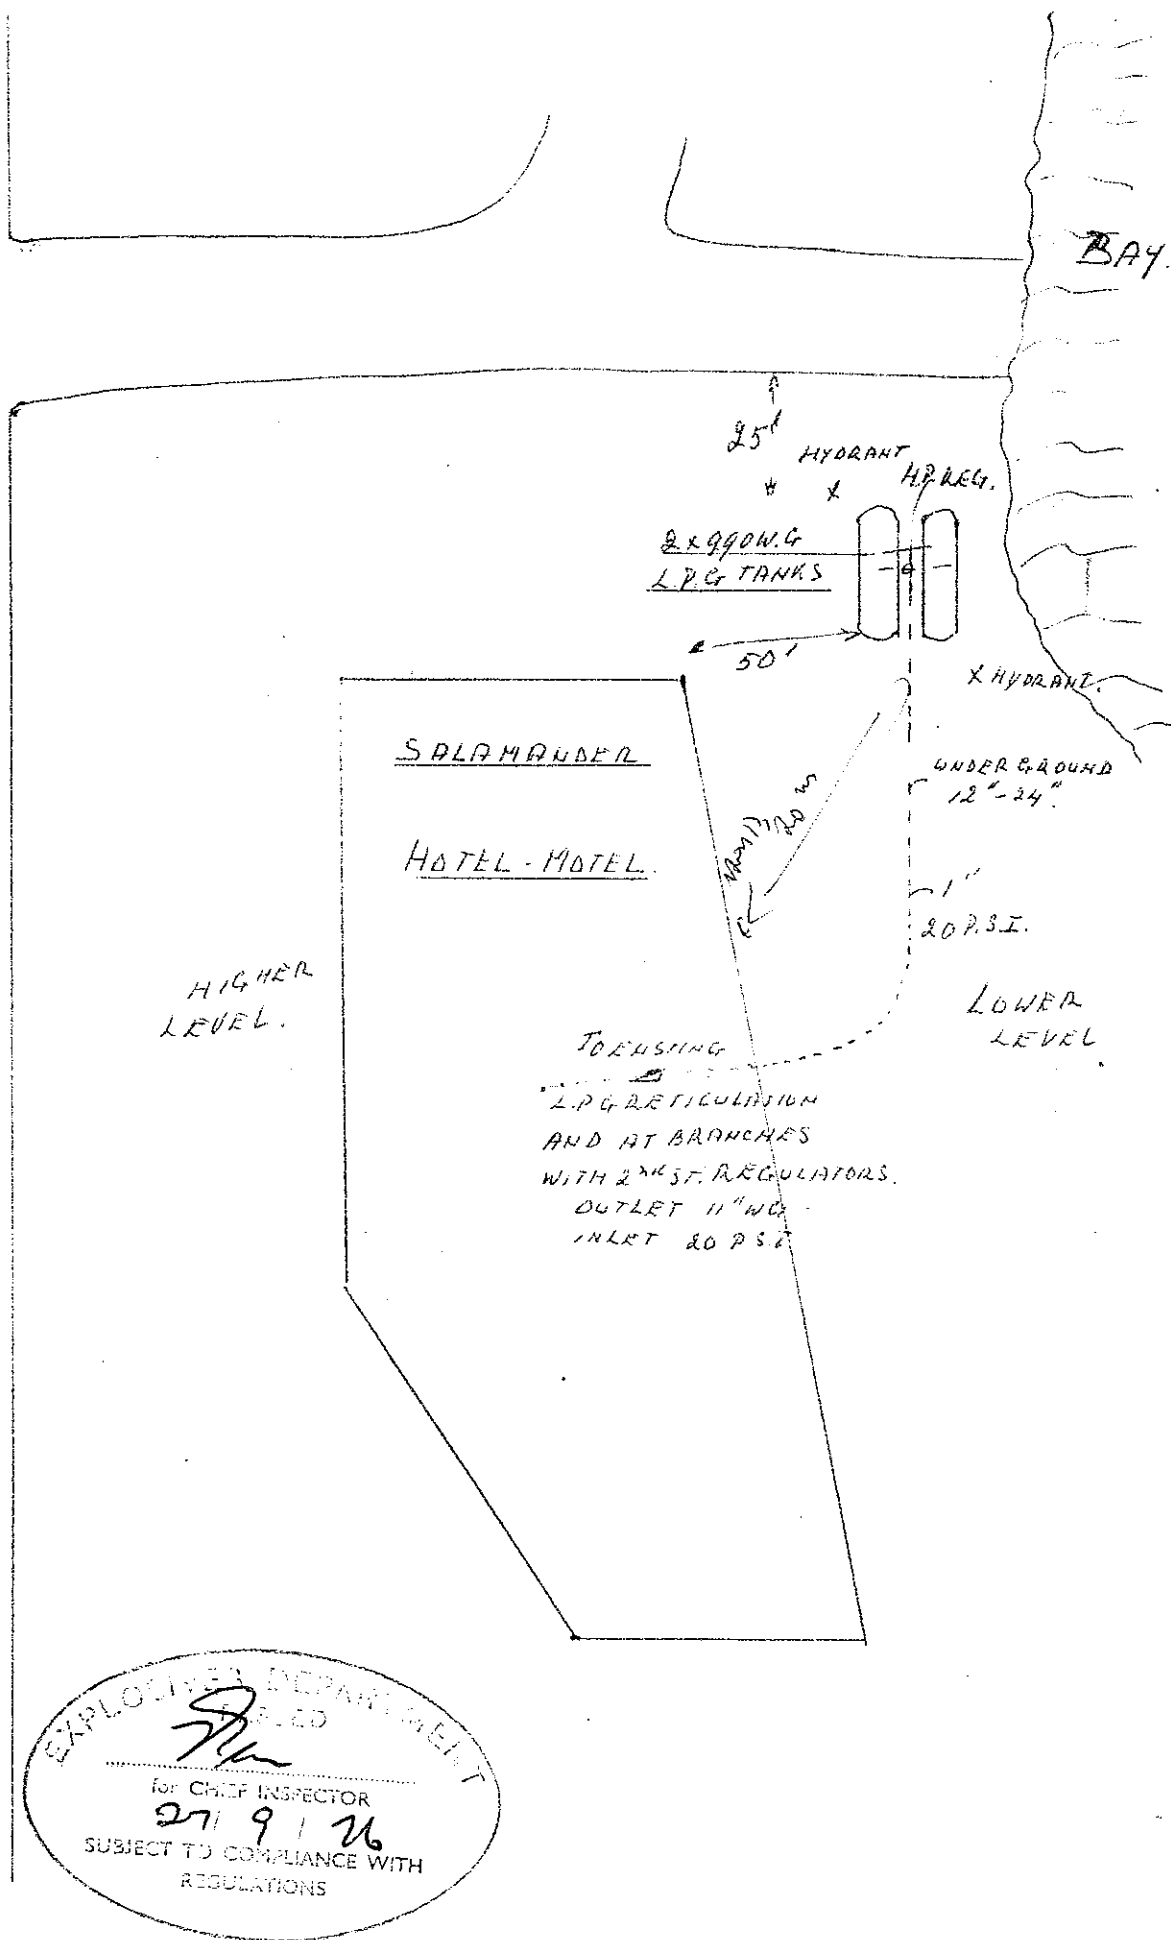 BAY.
25'
HYDRANT
H.P. REG.
2 x 990 W.G
L.P.G TANKS
50'
X HYDRANT.
SALAMANDER
HOTEL - MOTEL.
UNDERGROUND
12" - 24".
20 m
1"
20 P.S.I.
HIGHER
LEVEL.
LOWER
LEVEL
TO
L.P.G RETICULATION
AND AT BRANCHES
WITH 2ND ST. REGULATORS.
OUTLET 11" WG
INLET 20 P.S.I
EXPLOSIVES DEPARTMENT
for CHIEF INSPECTOR
27 / 9 / 76
SUBJECT TO COMPLIANCE WITH
REGULATIONS